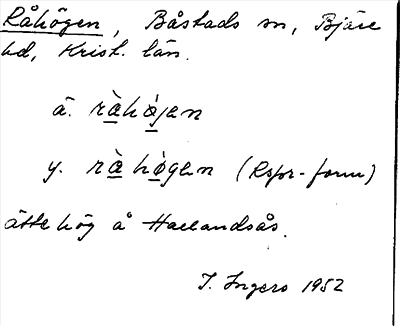 Råhögen, Båstads sn, Bjäre
hd, Krist. län.
ä. ràhǿjen
y. ràhǿgen (Rspr-form)
ättehög å Hallandsås.
I. Ingers 1952